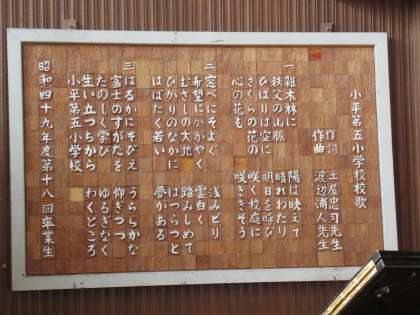 小平第五小学校校歌
作詞 土屋忠司先生
作曲 渡辺浦人先生
一 雑木林に 陽は映えて
秩父の山脈 晴れわたり
ひばりは空に 明日を呼び
さくらの花の 咲く校庭に
心の花も 咲ききそう
二 窓べにそよぐ 浅みどり
希望にかがやく 雲白く
むさしの大地 踏みしめて
ひかりのなかに はつらつと
はばたく若い 夢がある
三 はるかにそびえ うららかな
富士のすがたを 仰ぎつつ
たのしく学び ゆるぎなく
生い立つちから わくところ
小平第五小学校
昭和四十九年度第十八回卒業生